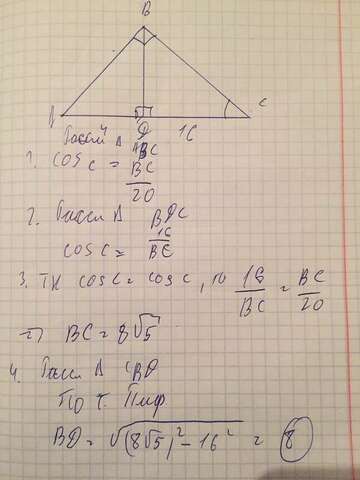 B
A
D
C
16
1. cos c = BC/20
2. Рассм Δ BDC
cos c = 16/BC
3. Тк cos c = cos c, то 16/BC = BC/20
=> BC = 8√5
4. Рассм Δ CBD
По т. Пиф
BD = √(8√5)² - 16² = 8